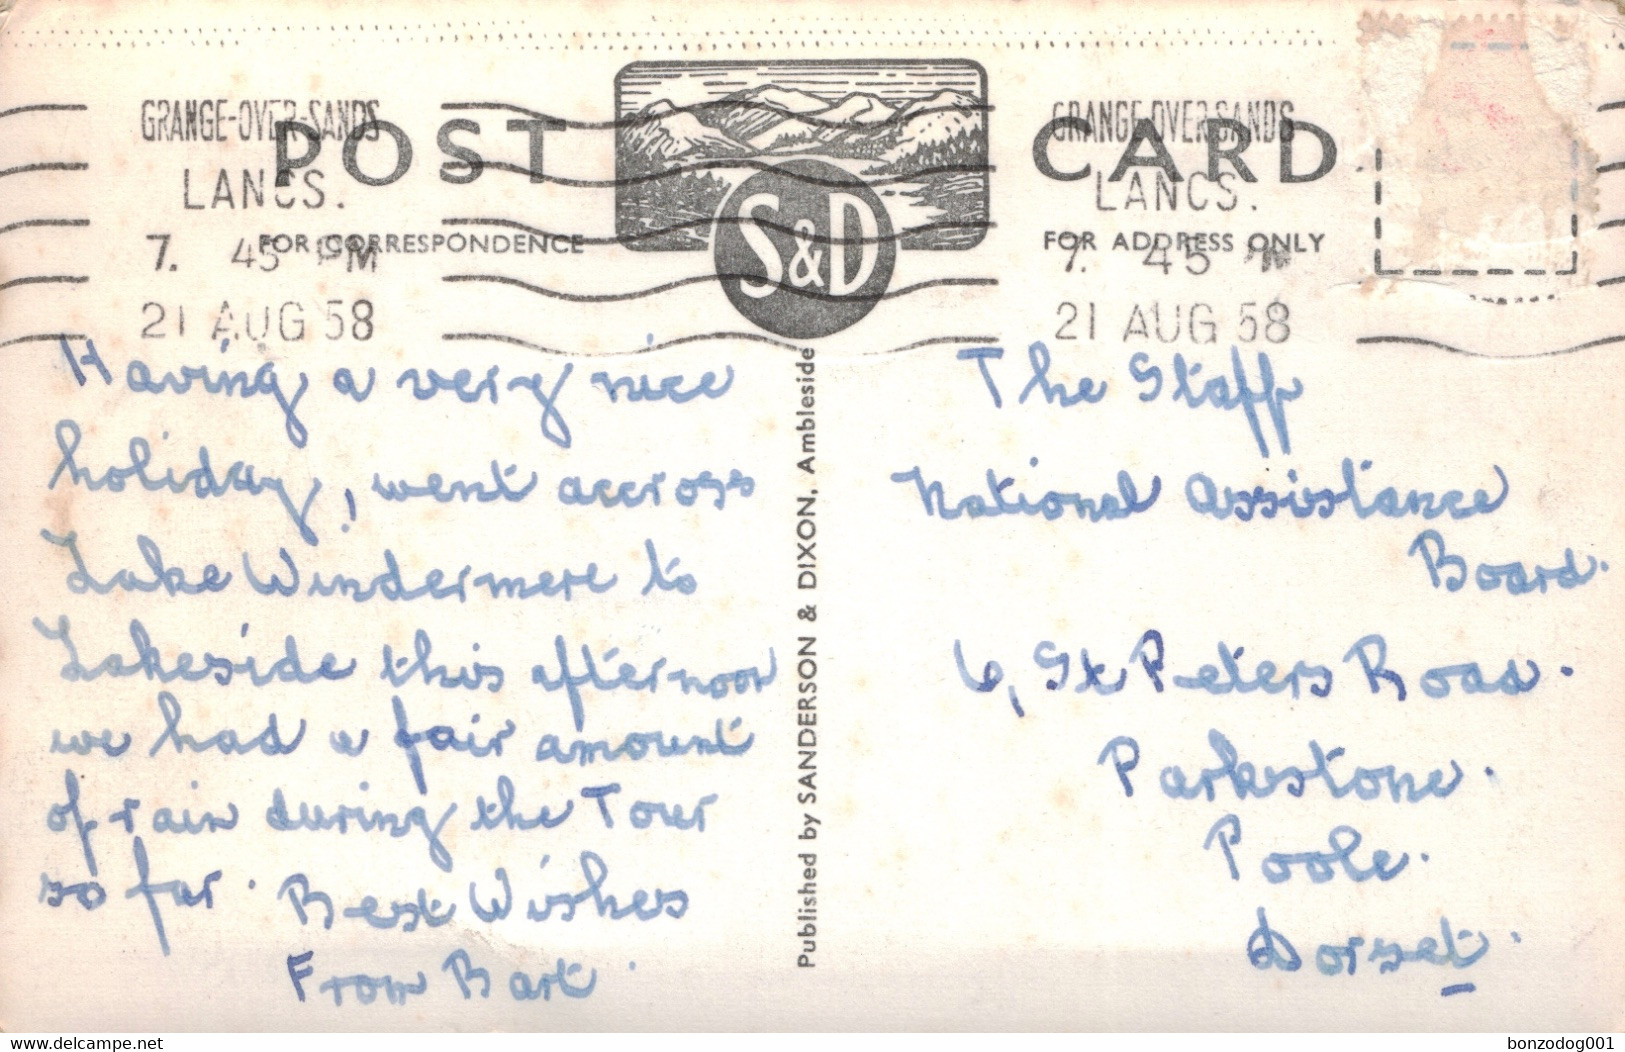 GRANGE-OVER-SANDS
LANCS.
7. 45 PM
21 AUG 58
POST CARD
FOR CORRESPONDENCE
S&D
GRANGE-OVER-SANDS
LANCS.
7. 45 PM
21 AUG 58
FOR ADDRESS ONLY
Having a very nice
holiday, went accross
Lake Windermere to
Lakeside this afternoon
we had a fair amount
of rain during the Tour
so far. Best Wishes
From Bart.
Published by SANDERSON & DIXON, Ambleside
The Staff
National Assistance
Board.
6, St Peters Road.
Parkstone.
Poole.
Dorset.
www.delcampe.net
bonzodog001